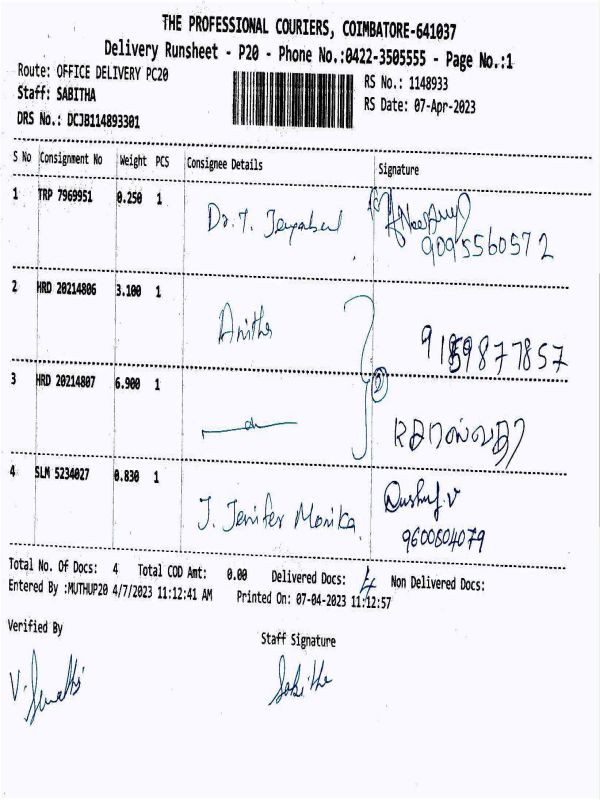 THE PROFESSIONAL COURIERS, COIMBATORE-641037
Delivery Runsheet - P20 - Phone No.:0422-3505555 - Page No.:1
Route: OFFICE DELIVERY PC20
RS No.: 1148933
Staff: SABITHA
RS Date: 07-Apr-2023
DRS No.: DCJB114893301
S No Consignment No Weight PCS Consignee Details Signature
1 TRP 7969951 0.250 1 Dr. T. Jeyabal
9095560572
2 HRD 20214806 3.100 1 Anitha
9159877857
3 HRD 20214807 6.900 1 do
2
சரஸ்வதி
4 SLM 5234027 0.830 1 J. Jenifer Monika.
9600804079
Total No. Of Docs: 4 Total COD Amt: 0.00 Delivered Docs: 4 Non Delivered Docs:
Entered By :MUTHUP20 4/7/2023 11:12:41 AM Printed On: 07-04-2023 11:12:57
Verified By
Staff Signature
Sabitha